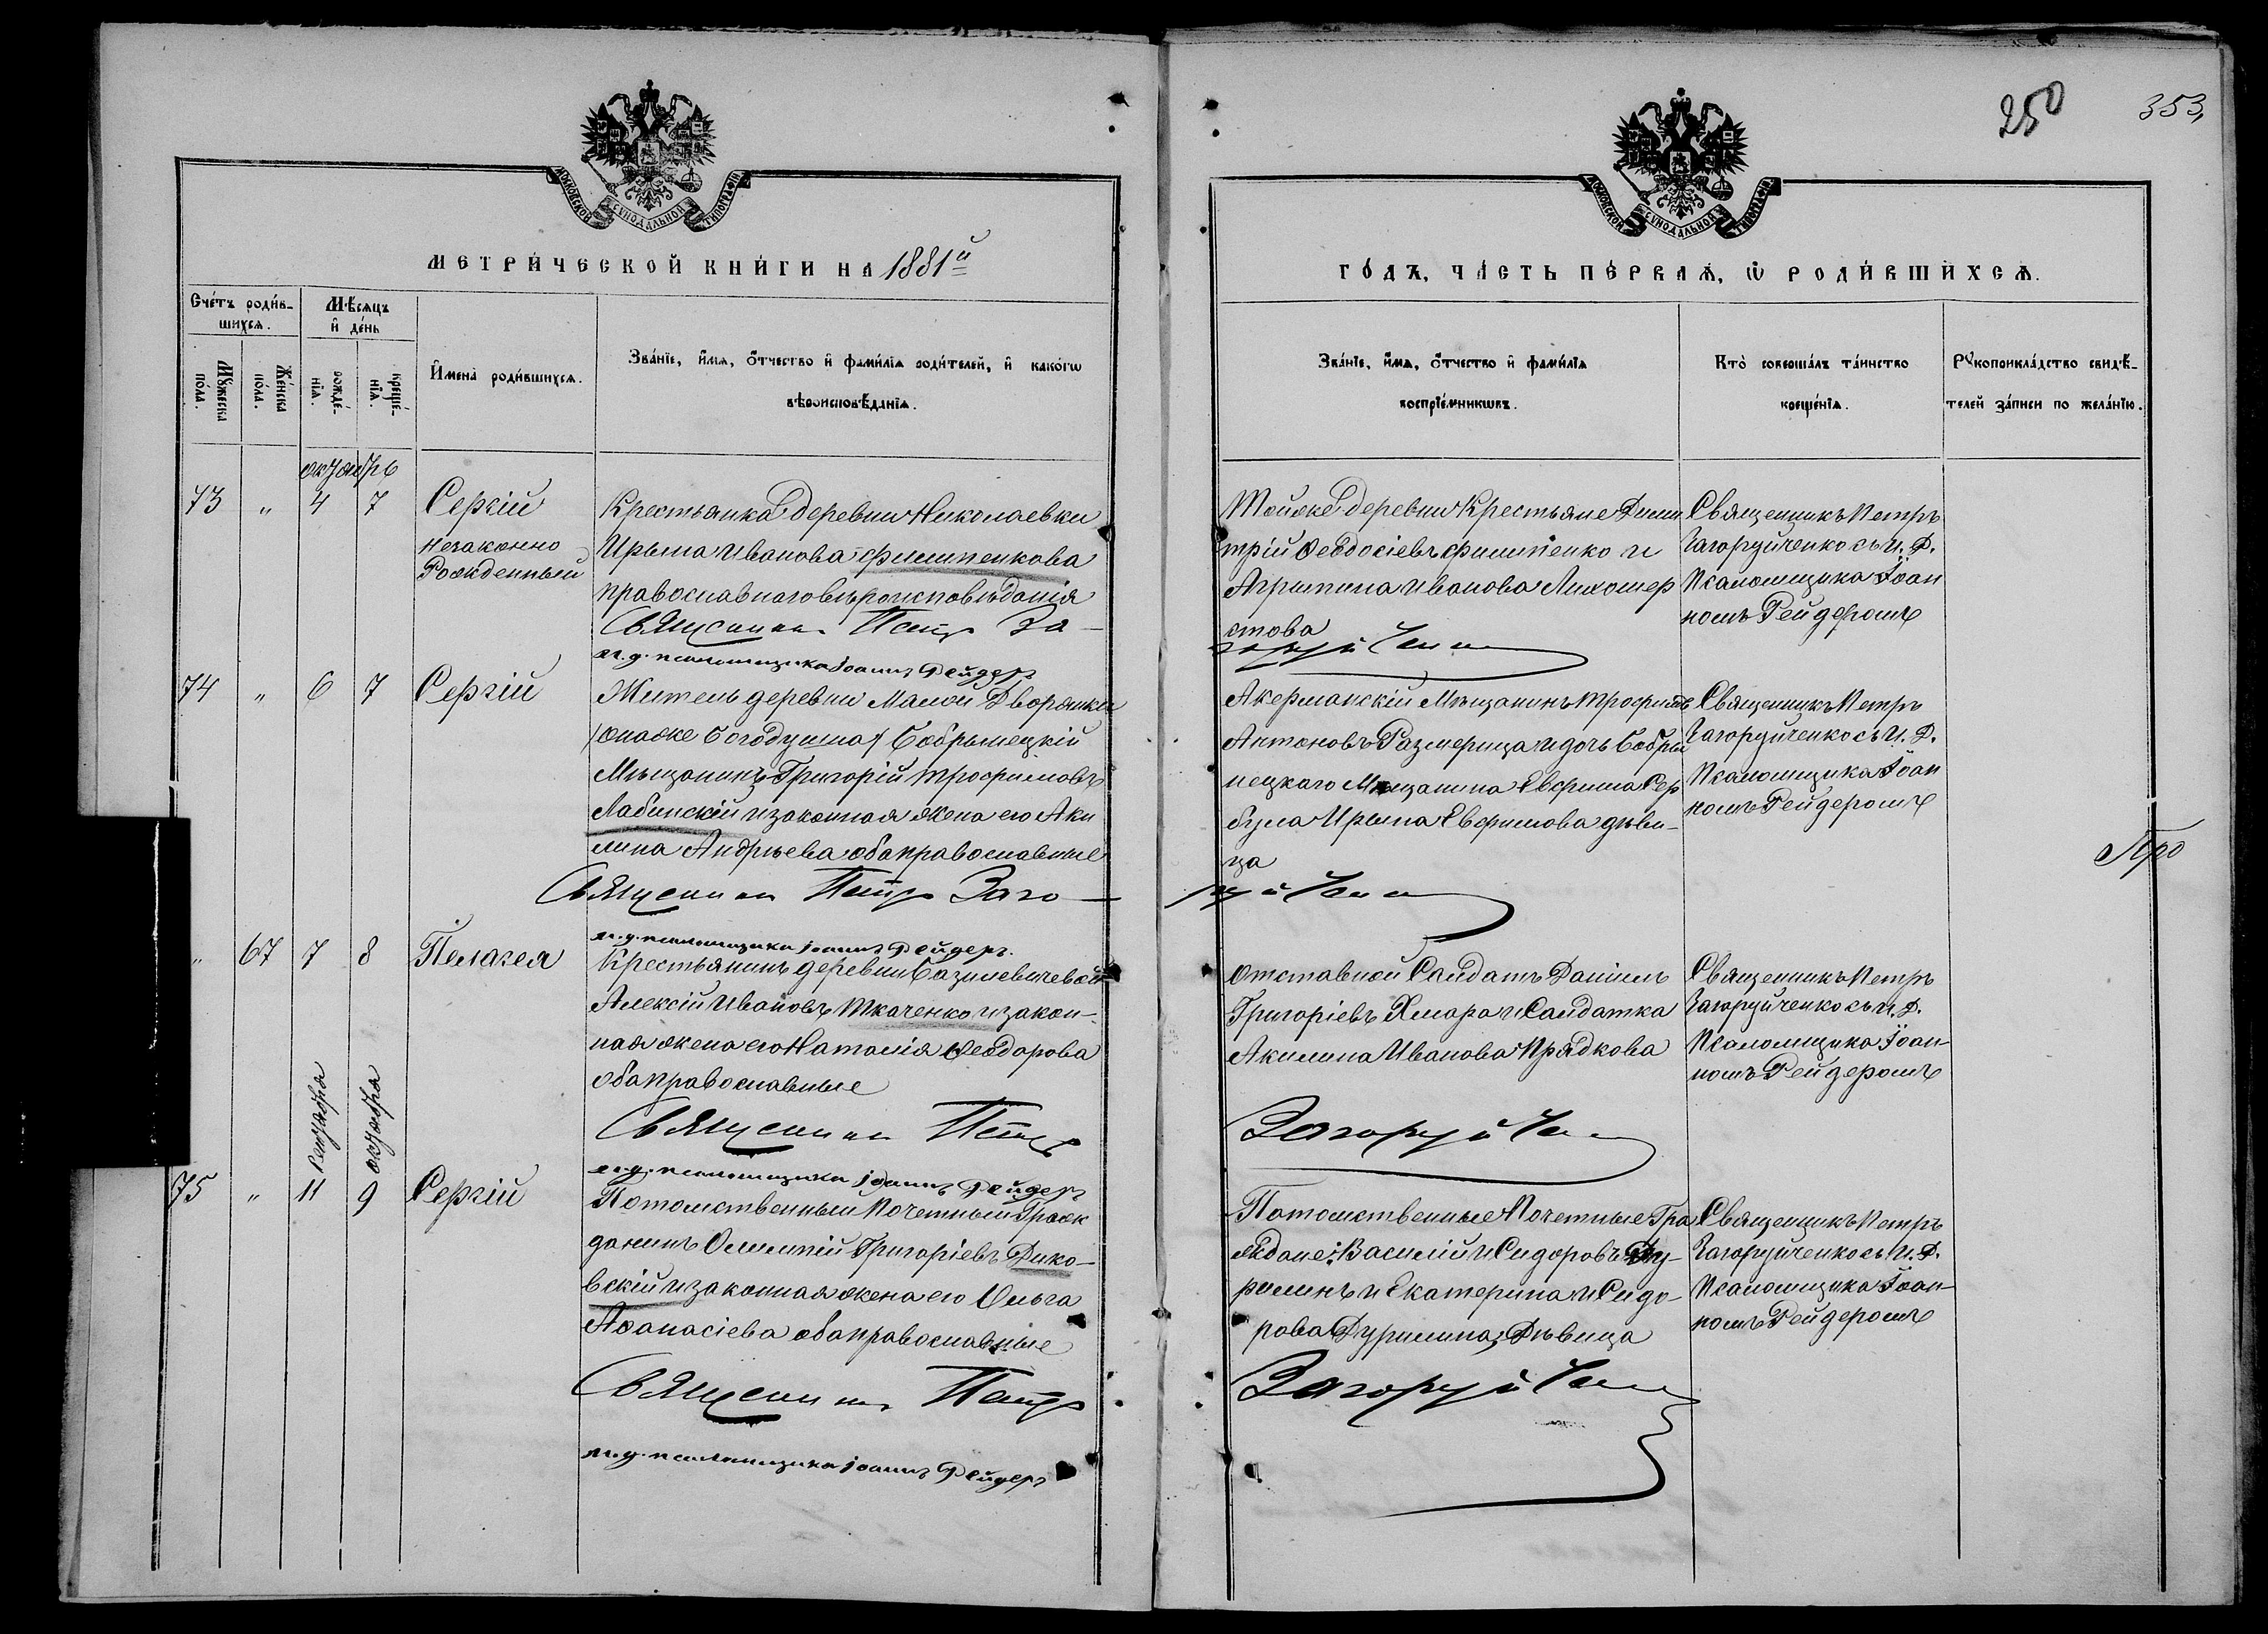 250
353,
МОСКОВСКОЙ СѴНОДАЛЬНОЙ ТИПОГРАФІИ
МОСКОВСКОЙ СѴНОДАЛЬНОЙ ТИПОГРАФІИ
МЕТРИ́ЧЕСКОЙ КНИ́ГИ НА 1881й
ГО́ДЪ, ЧА́СТЬ ПЕ́РВАѦ, Ѡ҆ РОДИ́ВШИХСѦ.
Счéтъ роди́в-
шихсѧ.
Мꙋ́жеска
по́ла.
Жéнска
по́ла.
Мѣ́сѧцъ
и҆ де́нь
рожде́-
нїѧ.
креще́-
нїѧ.
И҆мена̀ роди́вшихсѧ.
Зва́нїе, и҆́мѧ, ѻ҆́тчество и҆ фами́лїѧ роди́телей, и҆ како́гѡ
вѣроисповѣ́данїѧ.
Зва́нїе, и҆́мѧ, ѻ҆́тчество и҆ фами́лїѧ
воспрїе́мникѡвъ.
Кто̀ соверша́лъ та́инство
креще́нїѧ.
Рꙋкоприкла́дство свидѣ́-
телей за́писи по жела́нїю.
октябрь
73 " 4 7
Сергій
незаконно
Рожденный
Крестьянка деревни Николаевки
Ирына Иванова Филипенкова
православнаго вѣроисповѣданія
Священникъ Петръ За-
и.д. псаломщика Іоаннъ Рейдеръ
Тойже деревни Крестьяне Дими
трій Феодосіевъ Филипенко и
Агрипина Иванова Лихошер
стова
горуйченко
Священникъ Петръ
Загоруйченко съ И. Д.
Псаломщика Іоан
номъ Рейдеромъ
74 " 6 7
Сергій
Житель деревни Малой Дворянки
/онаже Богодушна/ Бобрынецкій
Мѣщанинъ Григорій Трофимовъ
Лабинскій и законная жена его Аки
лина Андрѣева оба православные
Священникъ Петръ Заго-
и.д. псаломщика Іоаннъ Рейдеръ.
Акерманскій Мѣщанинъ Трофимъ
Антоновъ Размерица и дочь Бобры
нецкаго Мѣщанина Евфима Сер
була Ирына Евфимова дѣви-
ца
руйченко
Священникъ Петръ
Загоруйченко съ И. Д.
Псаломщика Іоан
номъ Рейдеромъ
Про
" 67 7 8
Пелагея
Крестьянинъ деревни Базилевичевой
Алексій Ивановъ Ткаченко и закон-
ная жена его Наталія Феодорова
оба православные
Священникъ Петръ
и.д. псаломщика Іоаннъ Рейдеръ
Отставной Салдатъ Даніилъ
Григоріевъ Хмара и Салдатка
Акилина Иванова Прядкова
Загоруйченко
Священникъ Петръ
Загоруйченко съ И. Д.
Псаломщика Іоан-
номъ Рейдеромъ
Сентября
октября
75 " 11 9
Сергій
Потомственный Почетный Граж
данинъ Олимпій Григоріевъ Дико-
вскій и законная жена его Ольга
Афанасіева оба православные
Священникъ Петръ
и.д. псаломщика Іоаннъ Рейдеръ
Потомственные Почетные Гра
ждане: Василій Исидоровъ Ду-
рилинъ и Екатерина Исидо-
рова Дурилина, Дѣвица
Загоруйченко
Священникъ Петръ
Загоруйченко съ И. Д.
Псаломщика Іоан-
номъ Рейдеромъ